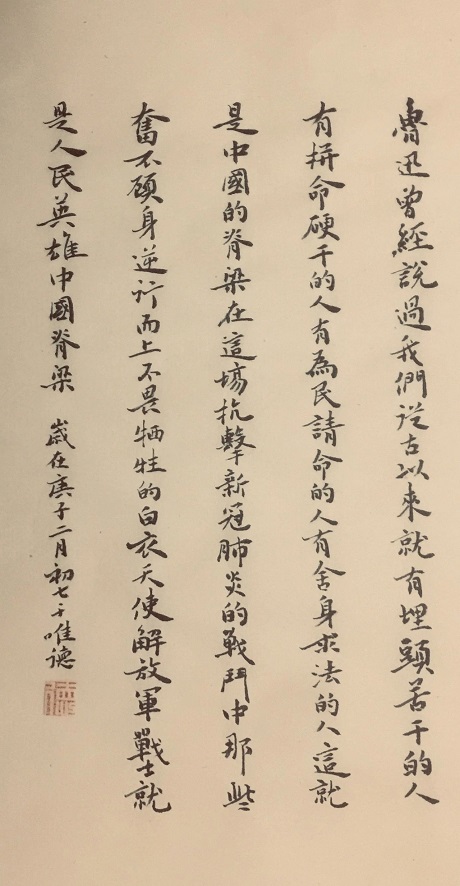 魯迅曾經說過我們從古以來就有埋頭苦干的人
有拼命硬干的人有為民請命的人有舍身求法的人這就
是中國的脊梁在這場抗擊新冠肺炎的戰鬥中那些
奮不顧身逆行而上不畏牺牲的白衣天使解放軍戰士就
是人民英雄中國脊梁 歲在庚子二月初七于唯德